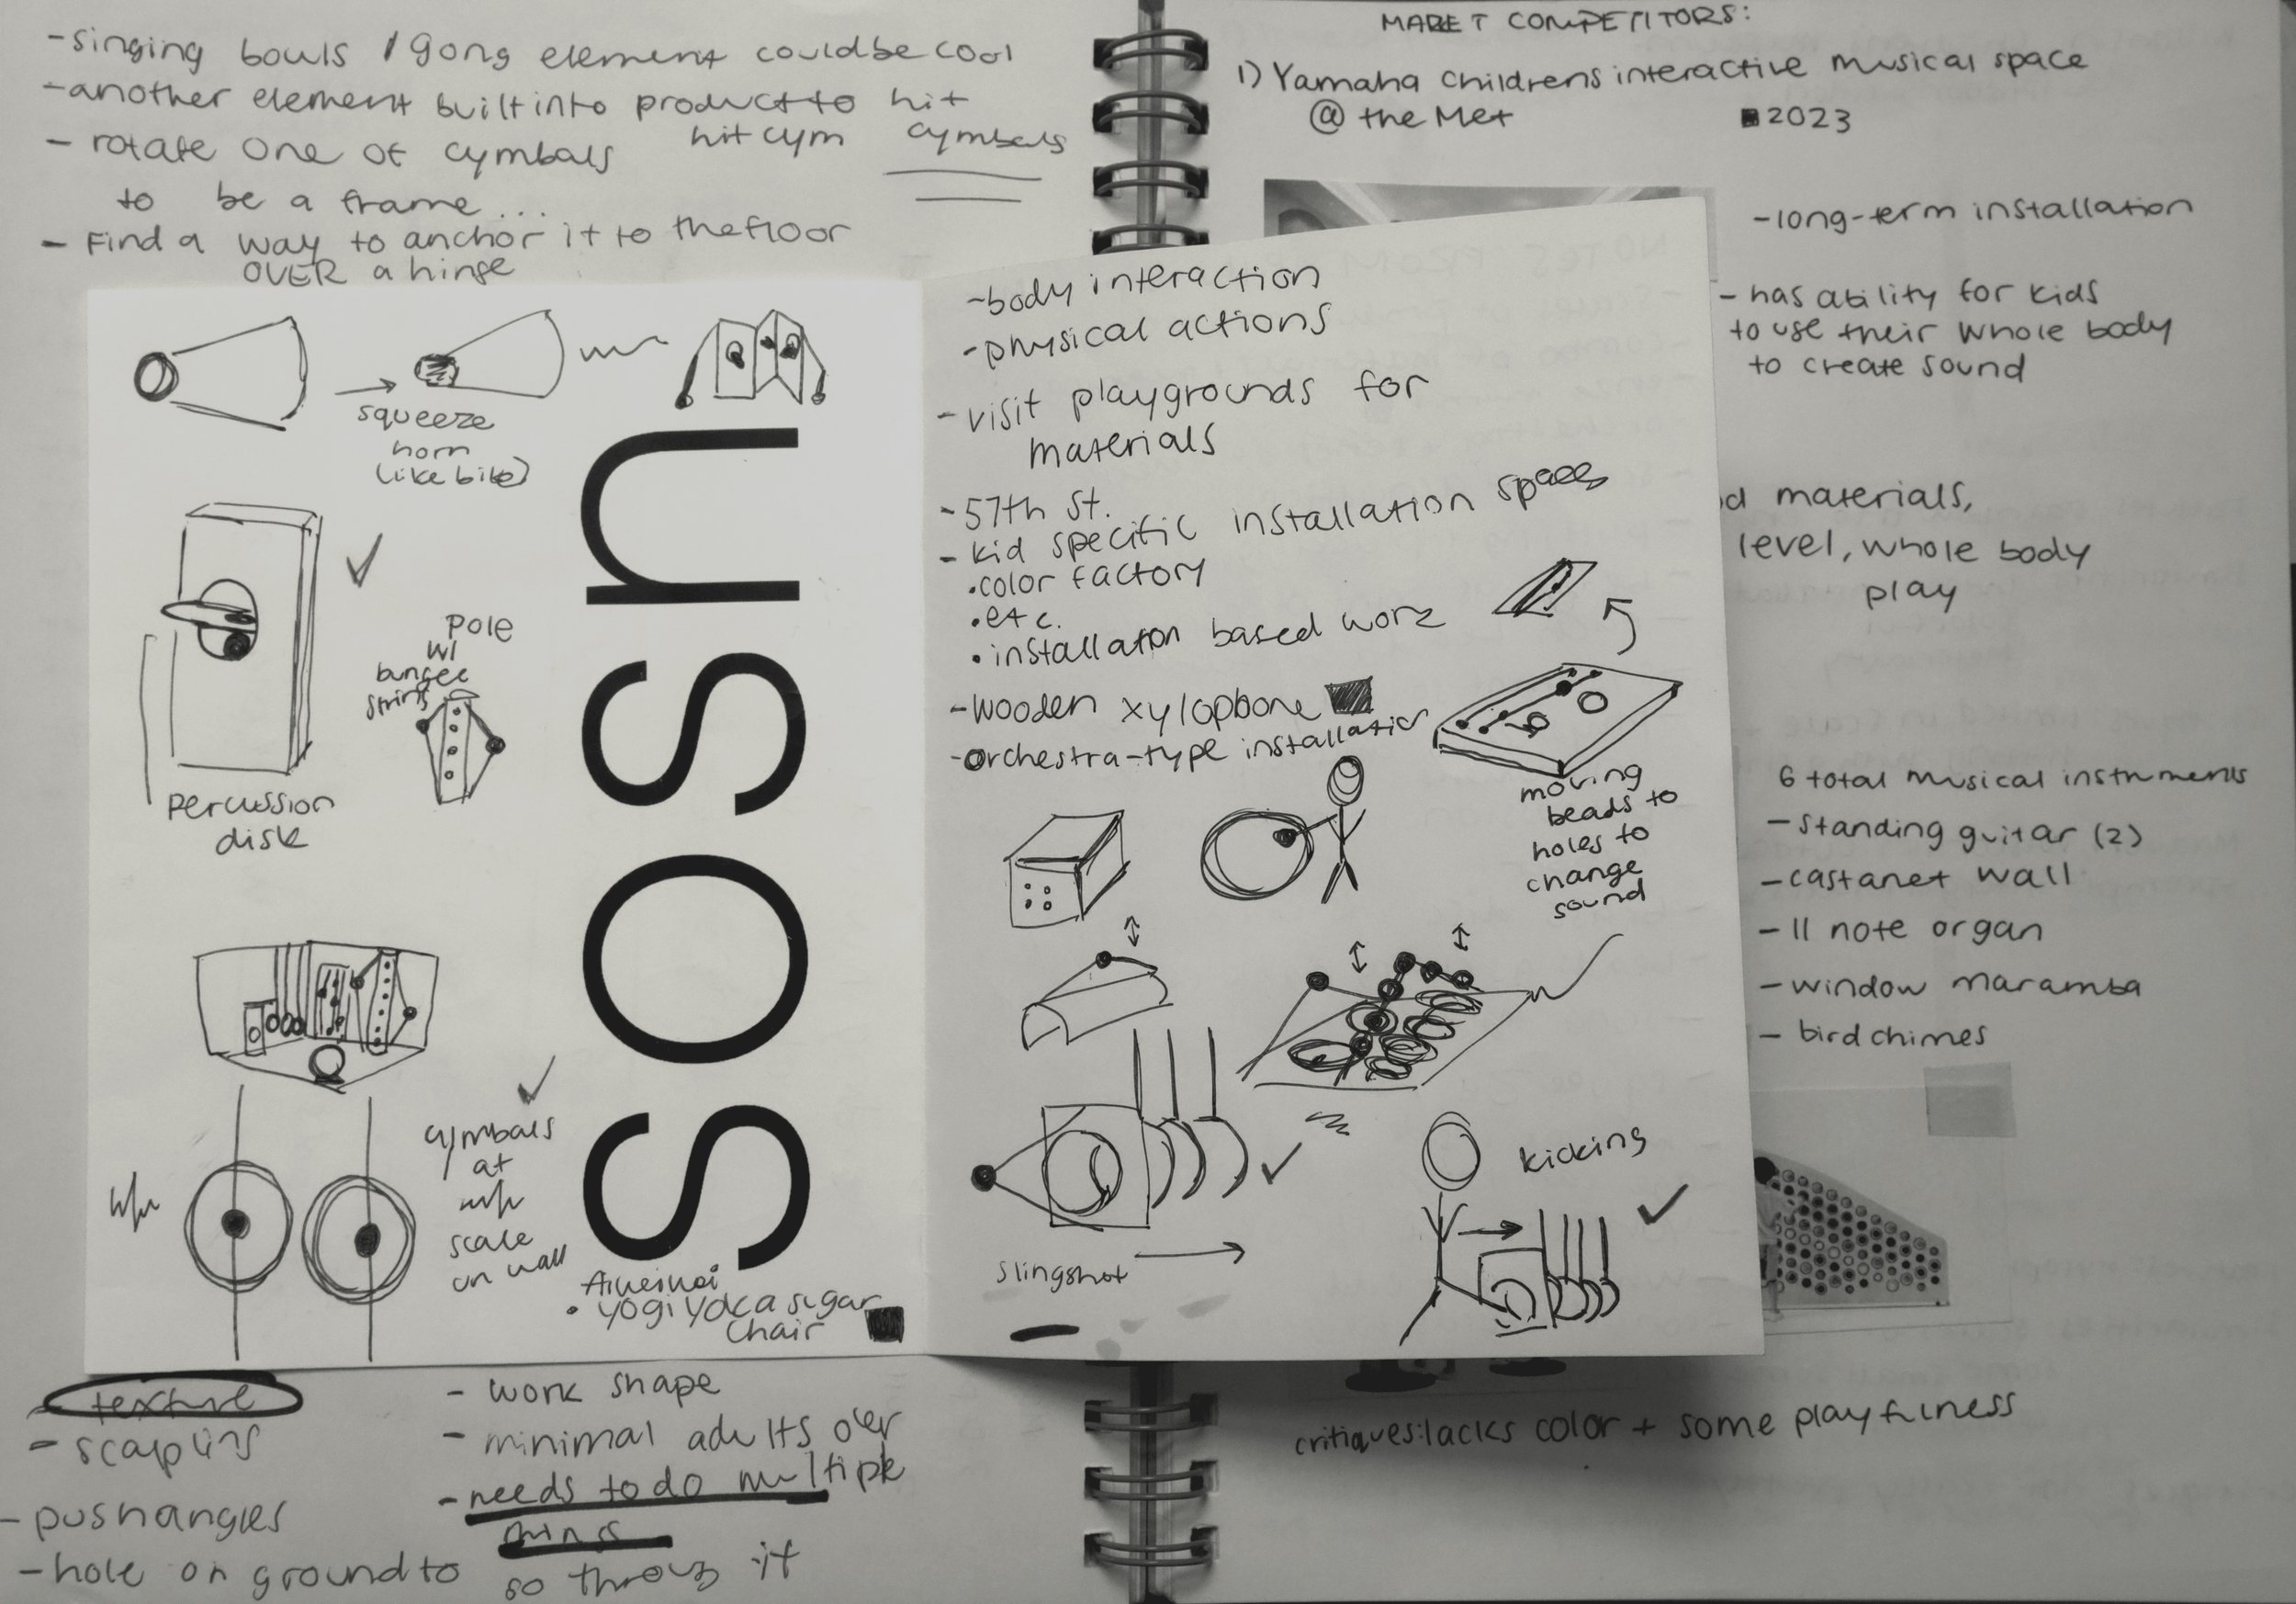 -singing bowls / gong element could be cool
-another element built into product to hit
hit cym cymbals
- rotate one of cymbals
to be a frame...
- Find a way to anchor it to the floor
OVER a hinge
squeeze
horn
(like bike)
percussion
disk
pole
w/
bungee
strings
SOSU
cymbals
at
scale
on wall
Aiweiwei
• yogi
chair
-body interaction
-physical actions
-visit playgrounds for
materials
-57th St.
- kid specific installation spaces
•color factory
•etc.
•installation based work
-wooden xylophone
-orchestra-type installation
moving
beads to
holes to
change
sound
slingshot
kicking
MARKET COMPETITORS:
1) Yamaha childrens interactive musical space
@ the Met
2023
-long-term installation
- has ability for kids
to use their whole body
to create sound
materials,
level, whole body
play
6 total musical instruments
-standing guitar (2)
-castanet wall
-11 note organ
-window maramba
- bird chimes
critiques: lacks color + some playfulness
texture
- push angles
-hole on ground to
- work shape
- minimal adults over
-needs to do multiple
things
so it